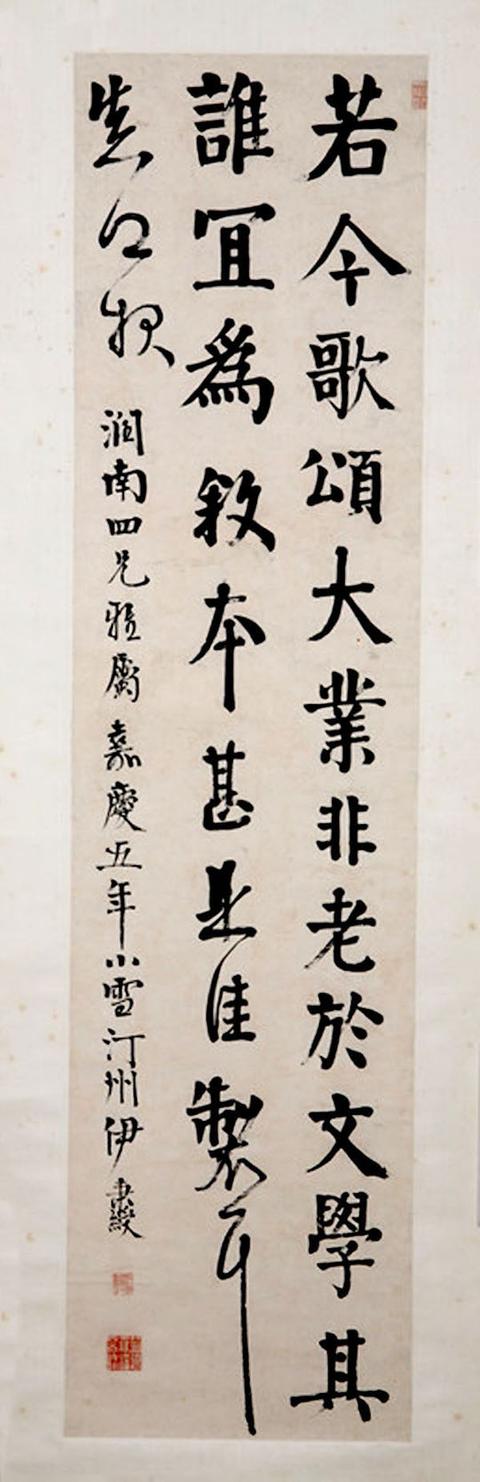 若今歌頌大業非老於文學其
誰冝爲敘本甚是佳製耳
潤南四兄雅屬嘉慶五年小雪汀州伊秉綬